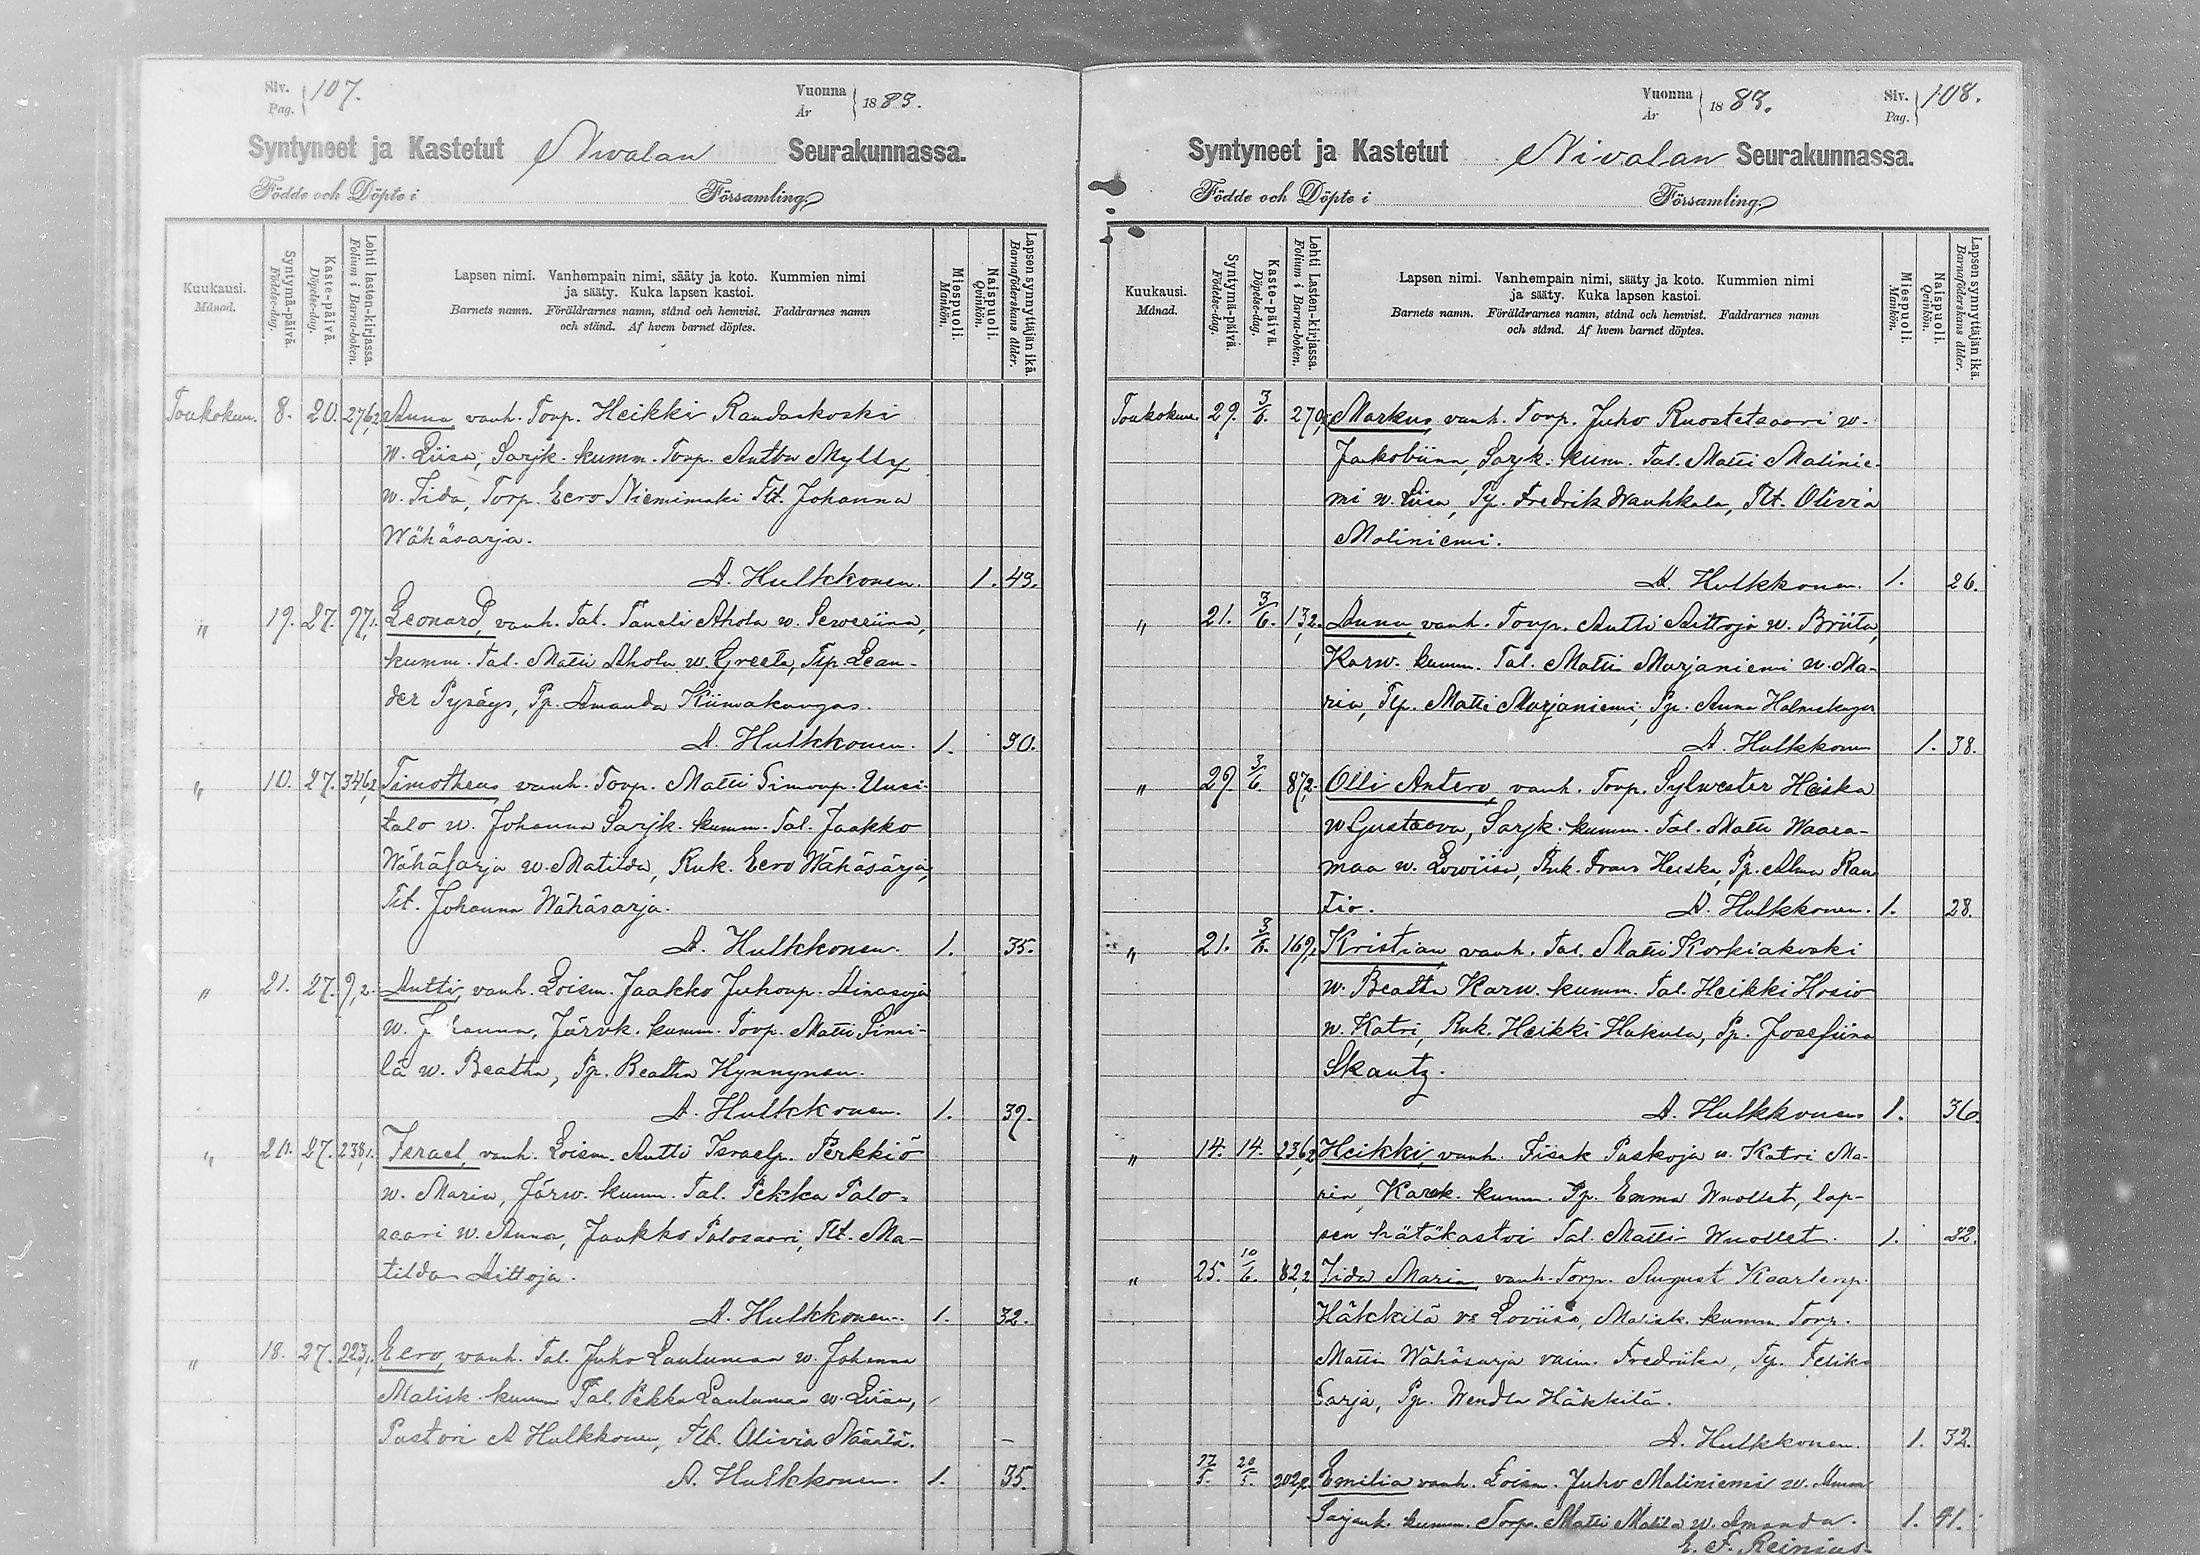 Siv. Pag. 107. Vuonna År 1883.
Syntyneet ja Kastetut Nivalan Seurakunnassa.
Födde och Döpte i Församling.
Kuukausi. Månad.
Syntymä-päivä. Födelse-dag.
Kaste-päivä. Döpelse-dag.
Lehti lasten-kirjassa. Folium i Barna-boken.
Lapsen nimi. Vanhempain nimi, sääty ja koto. Kummien nimi
ja sääty. Kuka lapsen kastoi.
Barnets namn. Föräldrarnes namn, stånd och hemvist. Faddrarnes namn
och stånd. Af hvem barnet döptes.
Miespuoli. Mankön.
Naispuoli. Qvinkön.
Lapsen synnyttäjän ikä. Barnaföderskans ålder.
Toukokuu. 8. 20. 276,2 Anna, vanh. Torp. Heikki Raudaskoski
w. Liisa, Sarjk. kumm. Torp. Antti Mylly
w. Iida, Torp. Eero Niemimaki Tlt. Johanna
Wähäsarja.
A. Hulkkonen. 1. 43.
" 19. 27. 97,1. Leonard, vanh. Tal. Taneli Ahola w. Seweriina,
kumm. Tal. Matti Ahola w. Greeta, Tlp. Lean-
der Pysäys, Pp. Amanda Kiimakangas.
A. Hulkkonen. 1. 30.
" 10. 27. 346,2 Timotheus vanh. Torp. Matti Simonp. Uusi-
talo w. Johanna Sarjk. kumm. Tal. Jaakko
Wähäsarja w. Matilda, Ruk. Eero Wähäsarja,
Tlt. Johanna Wähäsarja.
A. Hulkkonen. 1. 35.
" 21. 27. 9,2. Antti, vanh. Loism. Jaakko Juhonp. Ainasoja
w. Johanna, Järvk. kumm. Torp. Matti Simi-
lä w. Beatha, Pp. Beatha Hynnynen.
A. Hulkkonen. 1. 39.
" 20. 27. 238,1. Israel, vanh. Loism. Antti Israelp. Perkkiö
w. Maria, Järw. kumm. Tal. Pekka Palo-
saari w. Anna, Jaakko Palosaari, Tlt. Ma-
tilda Aittoja.
A. Hulkkonen. 1. 32.
" 18. 27. 223,1. Eero, vanh. Tal. Juho Lautumaa w. Johanna
Malisk. kumm Tal. Pekka Lautumaa w. Liisa,
Pastori A Hulkkonen, Tlt. Olivia Määtä.
A. Hulkkonen. 1. 35.
Vuonna År 1883. Siv. Pag. 108.
Syntyneet ja Kastetut Nivalan Seurakunnassa.
Födde och Döpte i Församling.
Kuukausi. Månad.
Syntymä-päivä. Födelse-dag.
Kaste-päivä. Döpelse-dag.
Lehti Lasten-kirjassa. Folium i Barna-boken.
Lapsen nimi. Vanhempain nimi, sääty ja koto. Kummien nimi
ja sääty. Kuka lapsen kastoi.
Barnets namn. Föräldrarnes namn, stånd och hemvist. Faddrarnes namn
och stånd. Af hvem barnet döptes.
Miespuoli. Mankön.
Naispuoli. Qvinkön.
Lapsen synnyttäjän ikä. Barnaföderskans ålder.
Toukokuu. 29. 3/6. 270, Markus, vanh. Torp. Juho Ruostetsaari w.
Jakobiina, Sarjk. kumm. Tal. Matti Malinie-
mi w. Liisa, Pp. Fredrik Wanhkala, Tlt. Olivia
Maliniemi.
A. Hulkkonen. 1. 26.
" 21. 3/6. 13,2. Anna, vanh. Torp. Antti Aittoja w. Briita,
Karw. kumm. Tal. Matti Marjaniemi w. Ma-
ria, Tlp. Matti Marjaniemi, Pp. Anna
A. Hulkkonen 1. 38.
" 29. 3/6. 87,2. Olli Antero, vanh. Torp. Sylwester Heiska
w Gustaava, Sarjk. kumm. Tal. Matti Waara-
maa w. Lowiisa, Ruk. Frans Heiska, Pp. Alma Rau
tio. A. Hulkkonen. 1. 28.
" 21. 3/6. 169,1 Kristian, vanh. Tal. Matti Korkiakoski
w. Beatha Karw. kumm. Tal. Heikki Hosio
w. Katri, Ruk. Heikki Hakula, Pp. Josefiina
Skantz.
A. Hulkkonen 1. 36.
" 14. 14. 236,2 Heikki, vanh. Iisak Paskoja w. Katri Ma-
ria, Karsk. kumm. Pp. Emma Wuollet, lap-
sen hätäkastoi Tal. Matti Wuollet. 1. 32.
" 25. 10/6. 82,2 Iida Maria, vanh. Torp. August Kaarlenp.
Häkkilä w Loviisa, Malisk. kumm. Torp.
Matti Wähäsarja vaim. Fredriika, Tp. Feliks
Sarja, Pp. Wendla Häkkilä.
A. Hulkkonen. 1. 32.
20/5. 202,2. Emilia vanh. Loism. Juho Maliniemi w. Anna
Sarjank. kumm. Torp. Matti Mattila w. Amanda. 1. 41.
E. F. Reinius.